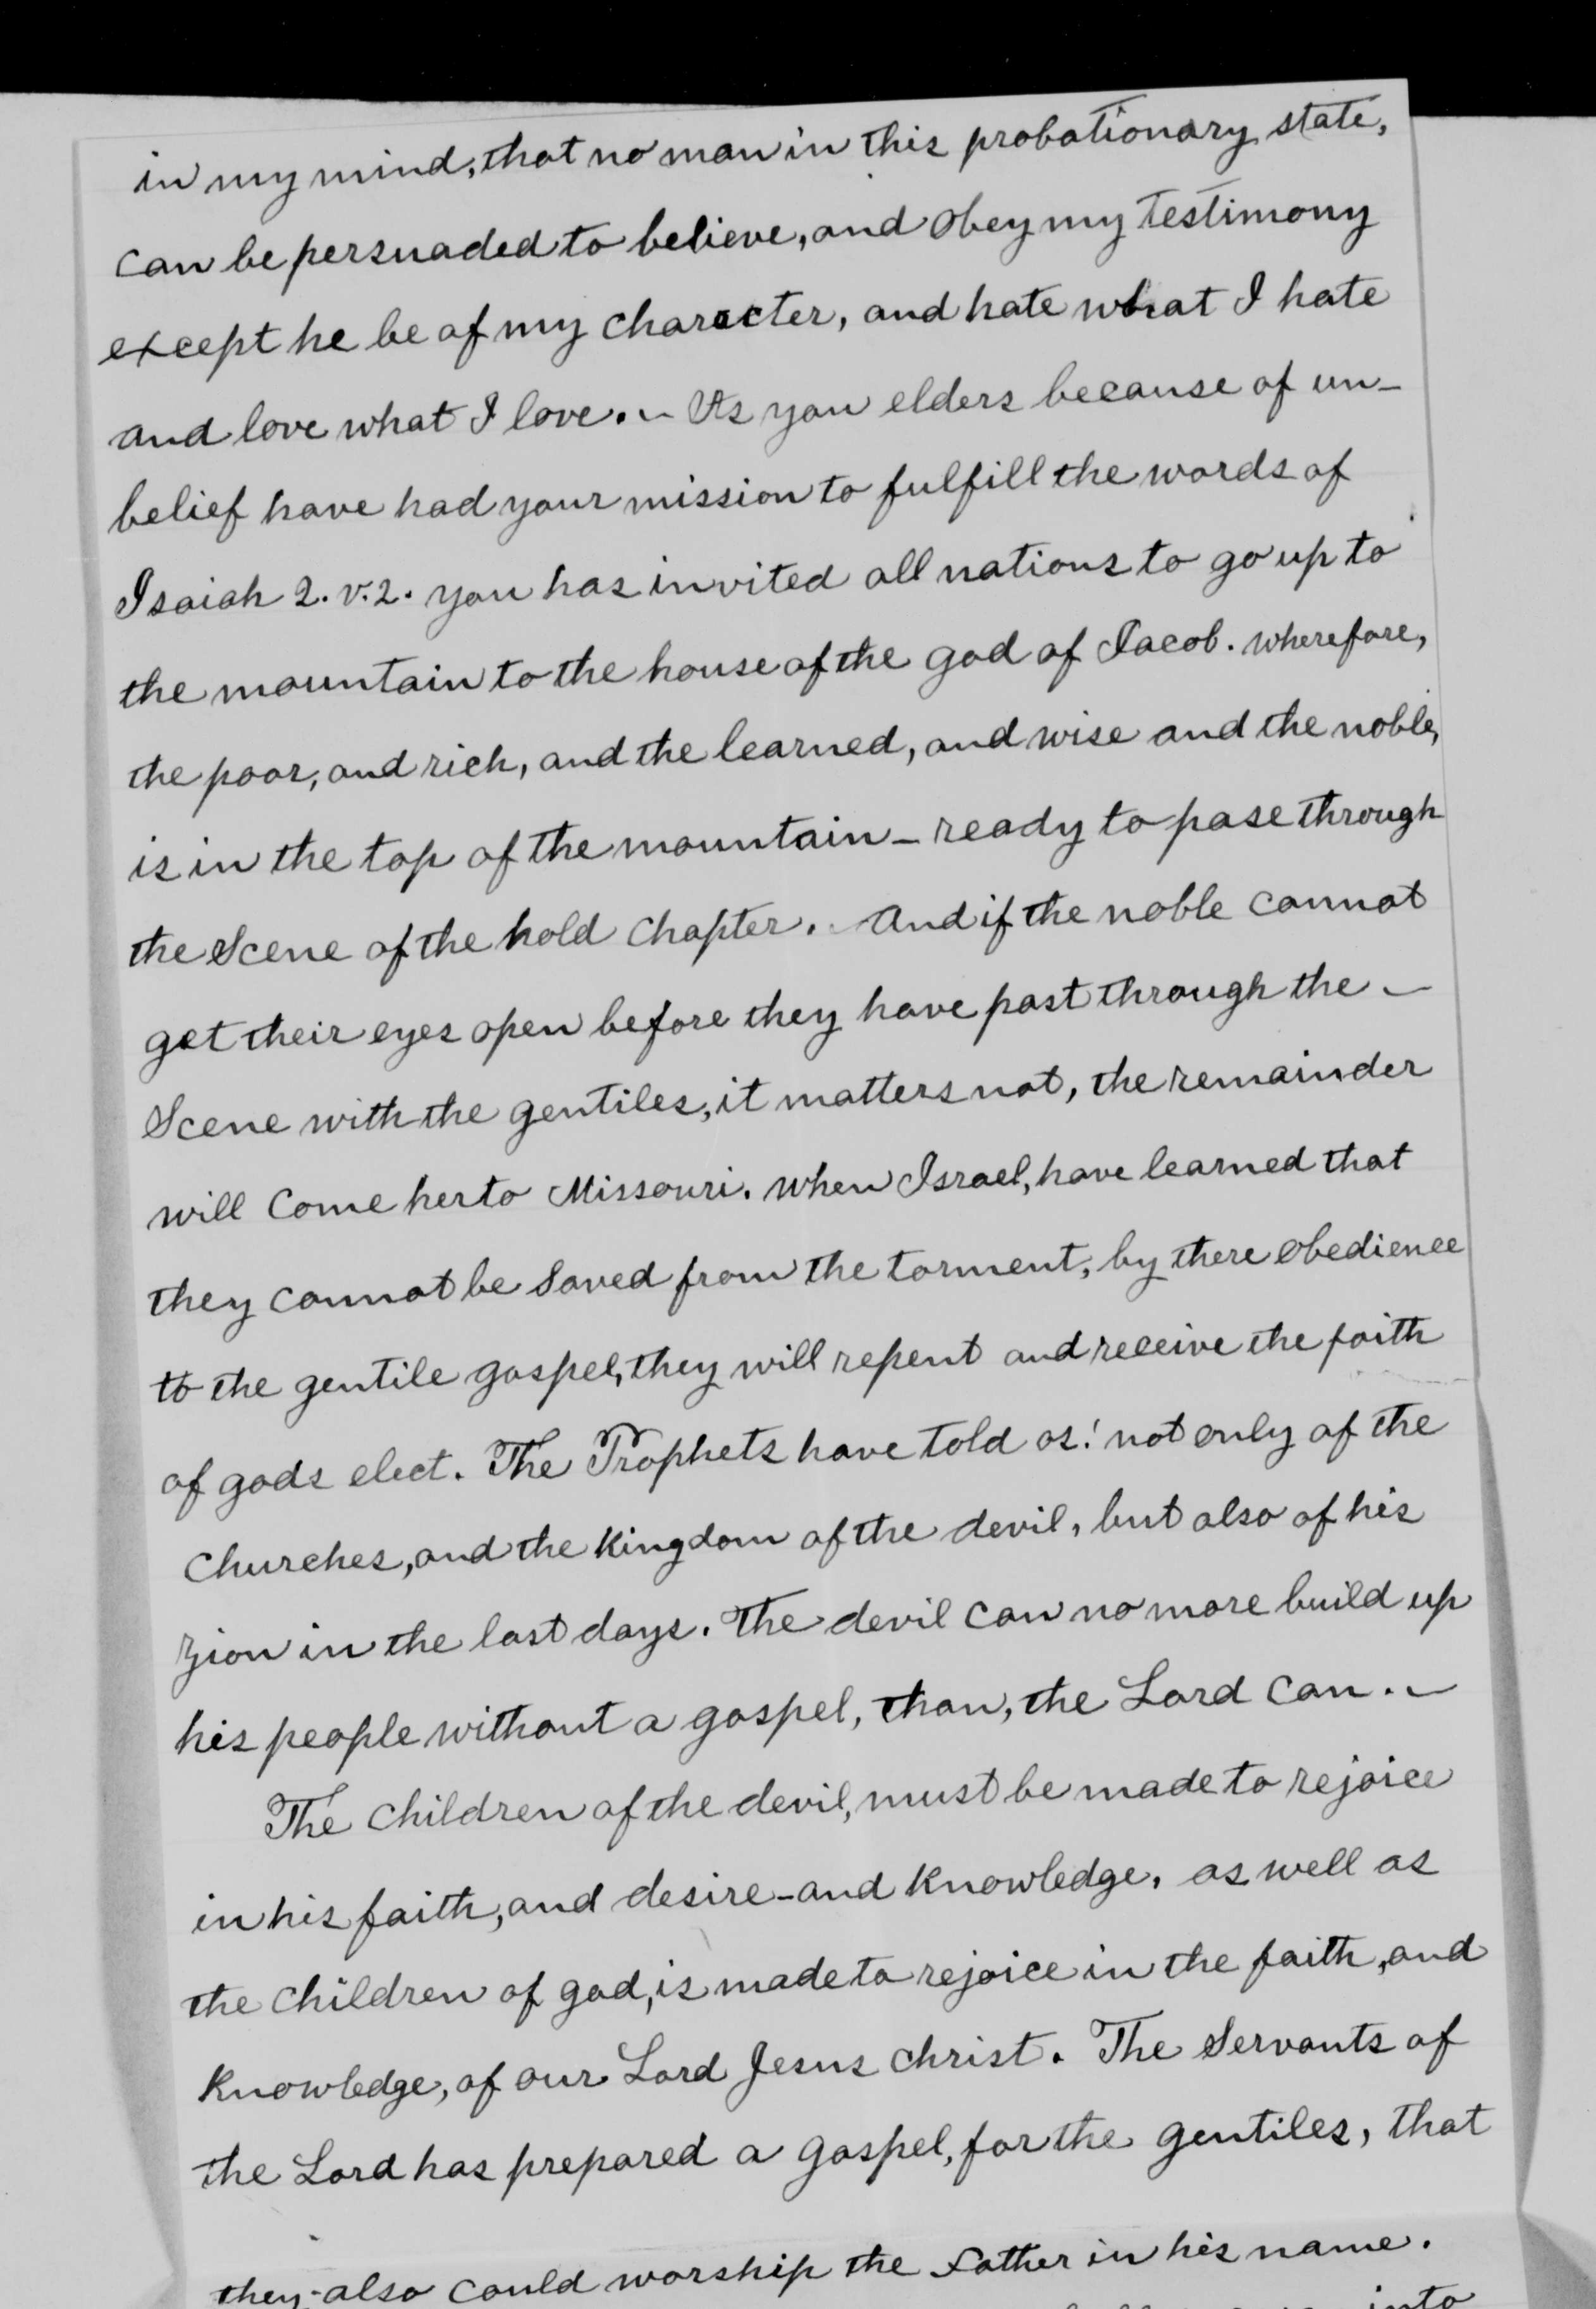 in my mind, that no man in this probationary state,
can be persuaded to believe, and obey my testimony
except he be of my character, and hate what I hate
and love what I love. – As you elders because of un-
belief have had your mission to fulfill the words of
Isaiah 2. v. 2. you has invited all nations to go up to
the mountain to the house of the god of Jacob. wherefore,
the poor, and rich, and the learned, and wise and the noble,
is in the top of the mountain – ready to pase through
the Scene of the hold Chapter. And if the noble cannot
get their eyes open before they have past through the –
Scene with the gentiles, it matters not, the remainder
will Come her to Missouri. when Israel, have learned that
they cannot be Saved from the torment, by there obedience
to the gentile gospel, they will repent and receive the faith
of gods elect. The Prophets have told os! not only of the
Churches, and the Kingdom of the devil, but also of his
Zion in the last days. The devil can no more build up
his people without a gospel, than, the Lord can. –
The Children of the devil, must be made to rejoice
in his faith, and desire – and Knowledge, as well as
the Children of god, is made to rejoice in the faith, and
Knowledge, of our Lord Jesus Christ. The Servants of
the Lord has prepared a gospel, for the gentiles, that
they also could worship the Father in his name.
into